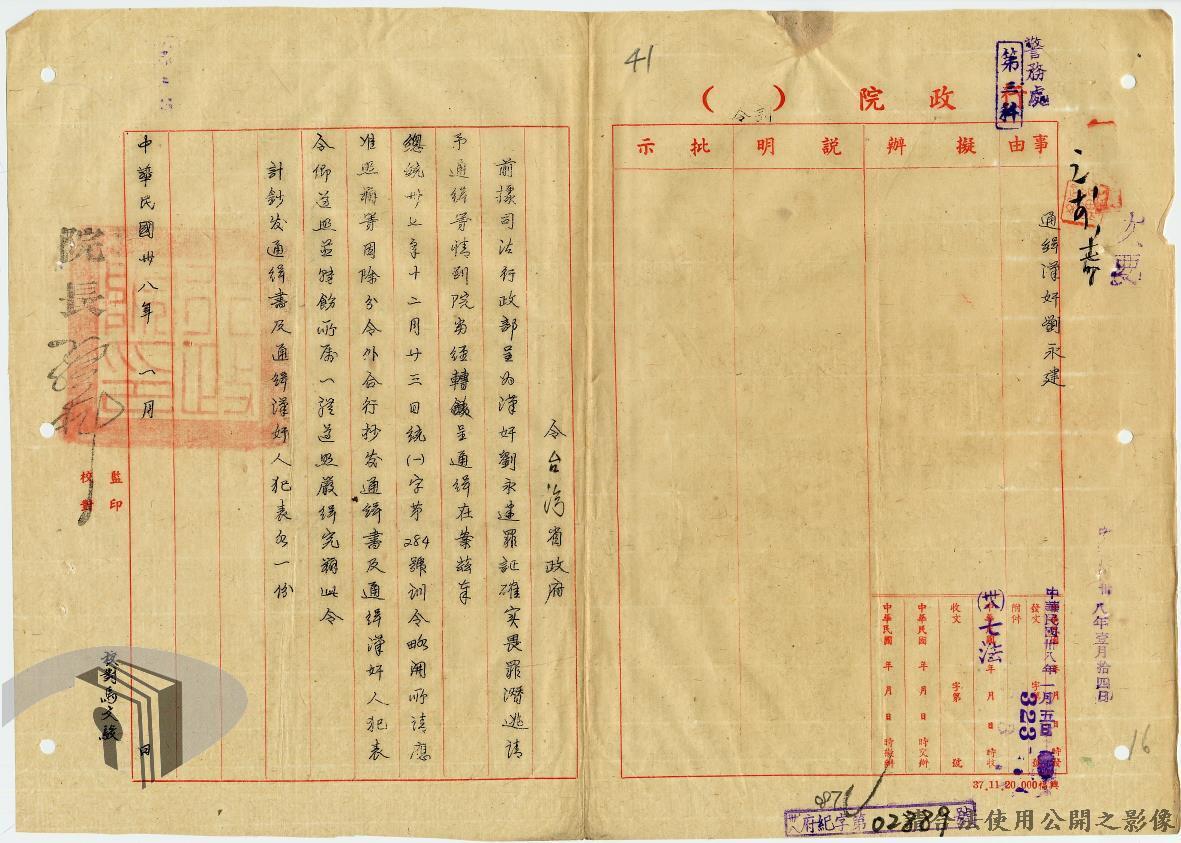 41
警務處
第三科
行政院（訓令）
事由
擬辦
說明
批示
文要
通緝漢奸劉永建
中華民國卅八年壹月拾四日
發文
附件
中華民國卅八年一月五日
(卅八)七法
323
收文
字第
號
中華民國 年 月 日 時交辦
中華民國 年 月 日 時擬辦
37.11.20.000
16
府紀字第02889號
令台灣省政府
前據司法行政部呈為漢奸劉永建罪証確實畏罪潛逃請
予通緝等情到院當經轉呈通緝在案茲奉
總統卅七年十二月廿三日統(一)字第284號訓令略開所請應
准照辦等因除分令外合行抄发通緝書及通緝漢奸人犯表
令仰遵照並轉飭所屬一體遵照嚴緝究辦此令
計鈔发通緝書及通緝漢奸人犯表各一份
中華民國卅八年 一月 日
院長
監印
校對
校對馬文駿
檔合法使用公開之影像